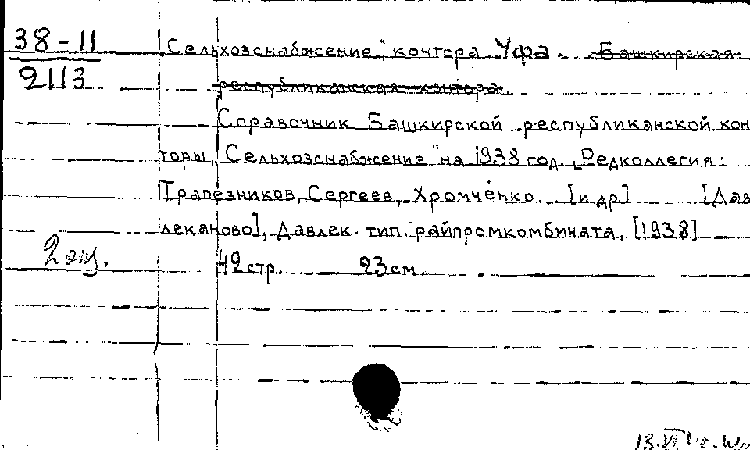 38-11
2113
Сельхозснабжение" контора Уфа. Башкирская
республиканская контора.
Справочник Башкирской республиканской кон
торы „Сельхозснабжение" на 1938 год. [Редколлегия:
Трапезников, Сергеев, Хромченко [и др.] [Дав
леканово], Давлек. тип. райпромкомбината, [1938]
2 экз.
42 стр. 23 см.